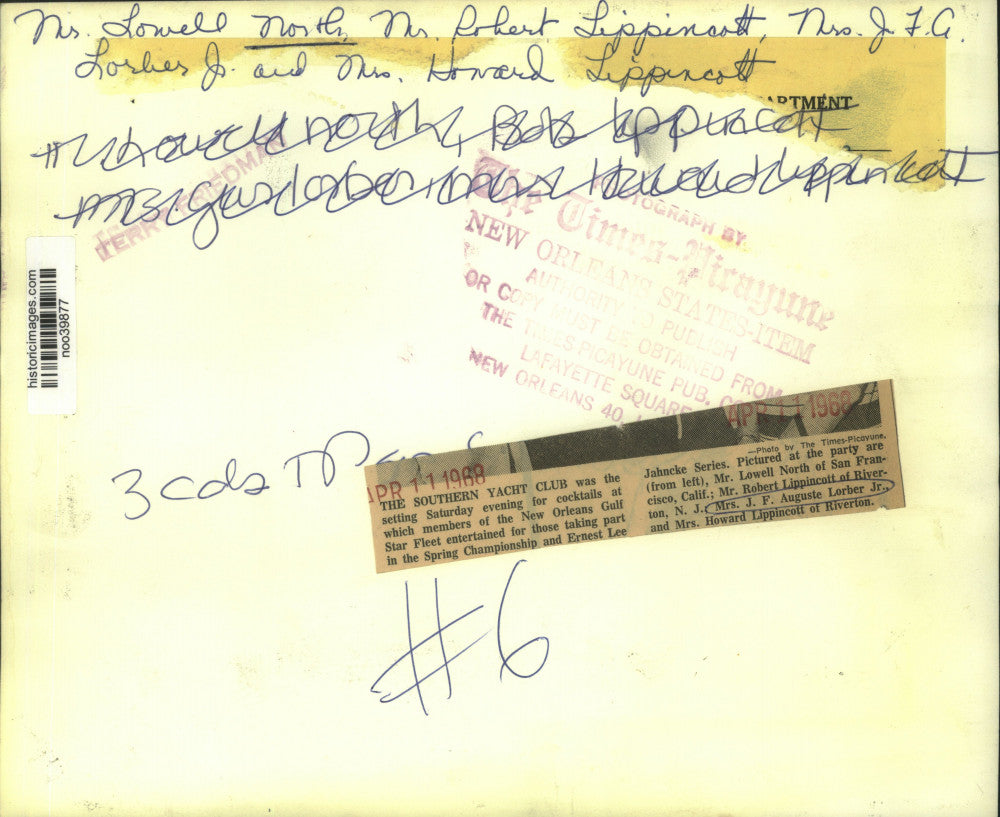 Mr. Lowell North, Mr. Robert Lippincott, Mrs. J. F. A.
Lorber Jr. and Mrs. Howard Lippincott
ARTMENT
Lowell North, Bob Lippincott
Mrs Gus Lorber Mrs Howard Lippincott
TERRY FRIEDMAN
PHOTOGRAPH BY
The Times-Picayune
NEW ORLEANS STATES-ITEM
AUTHORITY TO PUBLISH
OR COPY MUST BE OBTAINED FROM
THE TIMES-PICAYUNE PUB. CO.
LAFAYETTE SQUARE
NEW ORLEANS 40,
historicimages.com
noo39877
3 cols
APR 11 1968
APR 11 1968
THE SOUTHERN YACHT CLUB was the
setting Saturday evening for cocktails at
which members of the New Orleans Gulf
Star Fleet entertained for those taking part
in the Spring Championship and Ernest Lee
—Photo by The Times-Picayune.
Jahncke Series. Pictured at the party are
(from left), Mr. Lowell North of San Fran-
cisco, Calif.; Mr. Robert Lippincott of River-
ton, N. J.; Mrs. J. F. Auguste Lorber Jr.,
and Mrs. Howard Lippincott of Riverton.
#6